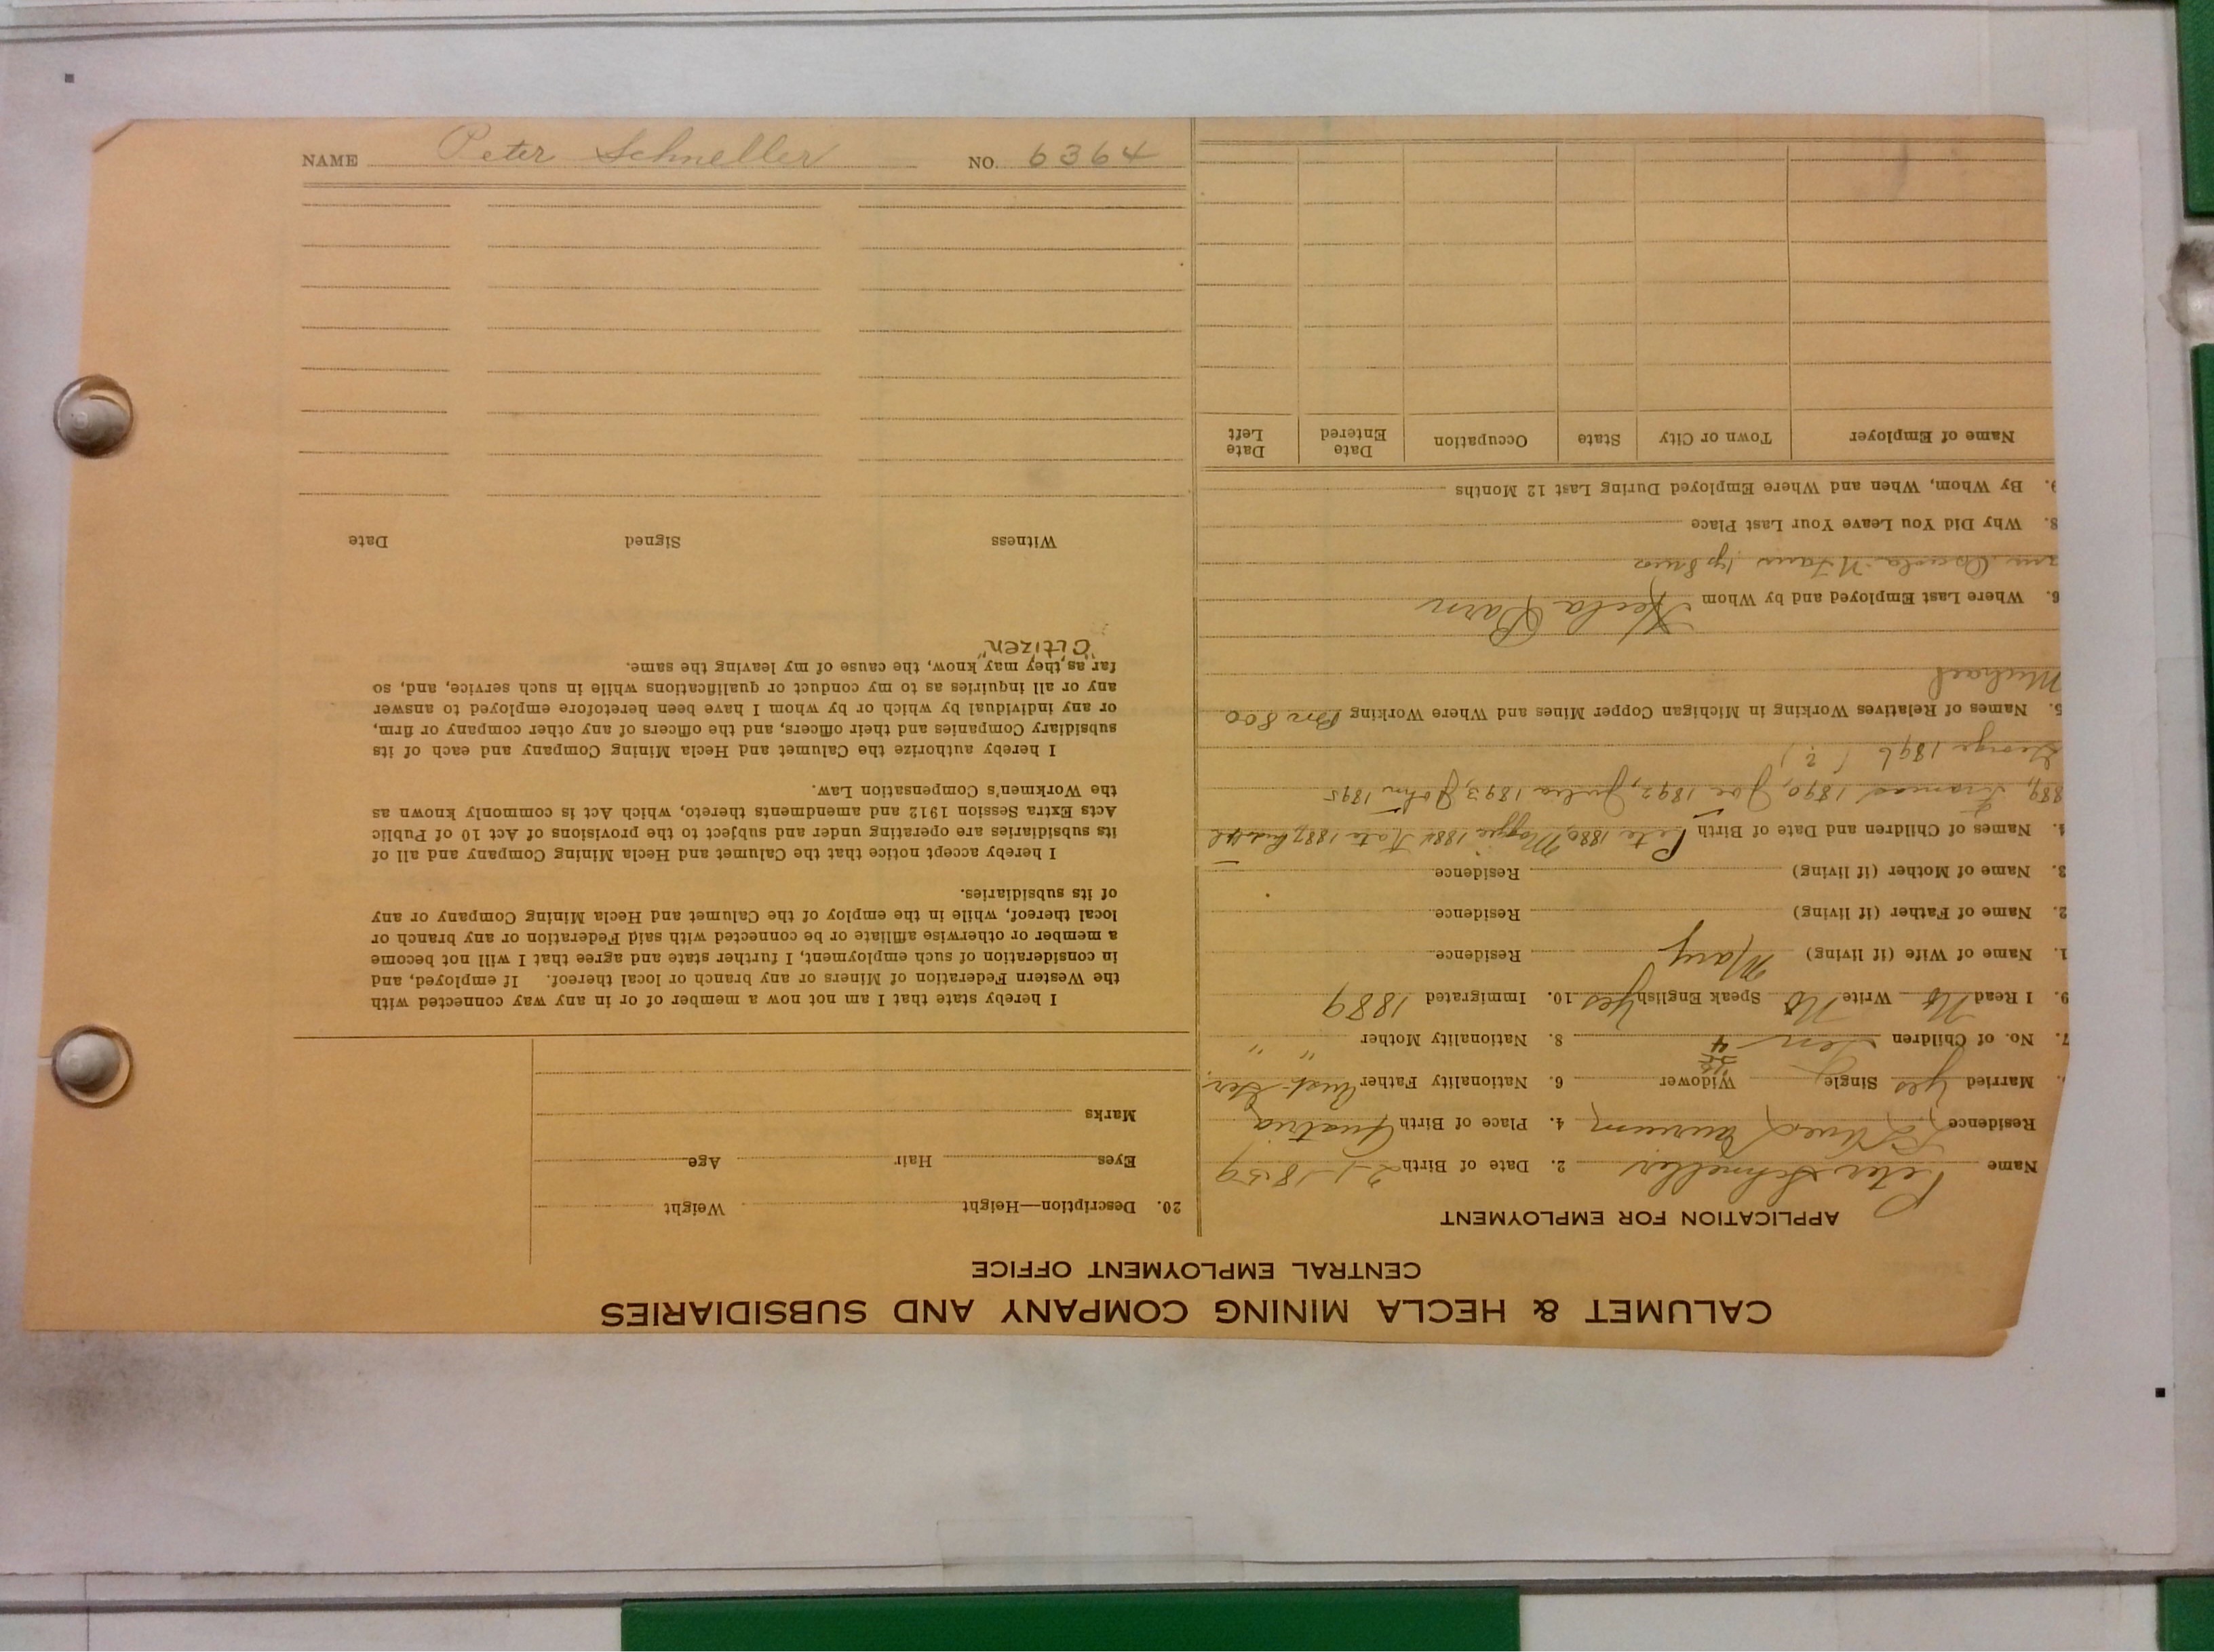 NAME Peter Schneller NO. 6364
CALUMET & HECLA MINING COMPANY AND SUBSIDIARIES
CENTRAL EMPLOYMENT OFFICE
APPLICATION FOR EMPLOYMENT
Name Peter Schneller 2. Date of Birth 2-1-1859
Residence Laurium 4. Place of Birth Austria
Married Yes Single Widower 6. Nationality Father Aust-Ger.
7. No. of Children Ten 4 8. Nationality Mother " "
9. I Read No Write No Speak English Yes 10. Immigrated 1889
1. Name of Wife (if living) Mary Residence
2. Name of Father (if living) Residence
3. Name of Mother (if living) Residence
4. Names of Children and Date of Birth Pete 1880, Maggie 1884 Kate 1887, Rudolph
889, Frances 1890, Joe 1892, Julia 1893, John 1895
George 1896 (?)
5. Names of Relatives Working in Michigan Copper Mines and Where Working Bro 800
Michael
6. Where Last Employed and by Whom Hecla Barn
8. Why Did You Leave Your Last Place
9. By Whom, When and Where Employed During Last 12 Months
Name of Employer Town or City State Occupation Date Entered Date Left
20. Description—Height Weight
Eyes Hair Age
Marks
I hereby state that I am not now a member of or in any way connected with
the Western Federation of Miners or any branch or local thereof. If employed, and
in consideration of such employment, I further state and agree that I will not become
a member or otherwise affiliate or be connected with said Federation or any branch or
local thereof, while in the employ of the Calumet and Hecla Mining Company or any
of its subsidiaries.
I hereby accept notice that the Calumet and Hecla Mining Company and all of
its subsidiaries are operating under and subject to the provisions of Act 10 of Public
Acts Extra Session 1912 and amendments thereto, which Act is commonly known as
the Workmen's Compensation Law.
I hereby authorize the Calumet and Hecla Mining Company and each of its
subsidiary Companies and their officers, and the officers of any other company or firm,
or any individual by which or by whom I have been heretofore employed to answer
any or all inquiries as to my conduct or qualifications while in such service, and, so
far as they may know, the cause of my leaving the same.
"Citizen"
Witness Signed Date